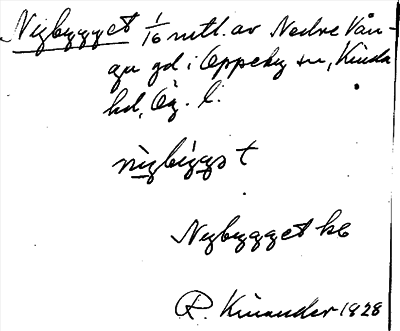 Nybygget 1/16 mtl. av Nedre Vån-
ga gd i Oppeby sn, Kinda
hd, Ög. l.
nỳbìggət
Nybygget kb
R. Kinander 1928